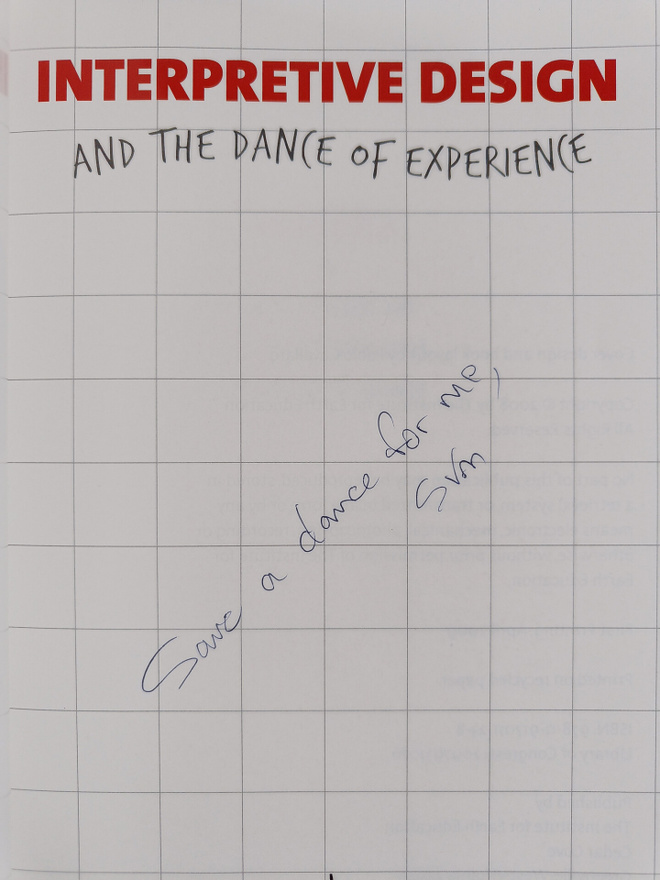 INTERPRETIVE DESIGN
AND THE DANCE OF EXPERIENCE
Save a dance for me,